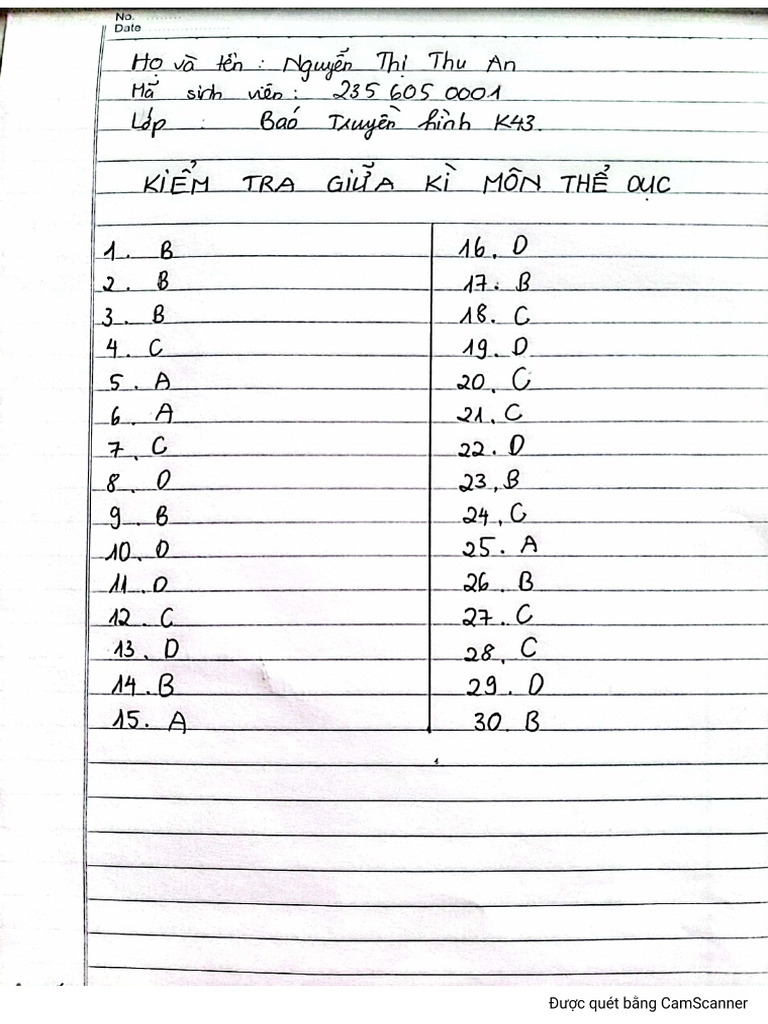 No.
Date
Họ và tên : Nguyễn Thị Thu An
Mã sinh viên : 235 605 0001
Lớp : Báo Truyền hình K43.
KIỂM TRA GIỮA KÌ MÔN THỂ DỤC
1. B
2. B
3. B
4. C
5. A
6. A
7. C
8. D
9. B
10. D
11. D
12. C
13. D
14. B
15. A
16. D
17. B
18. C
19. D
20. C
21. C
22. D
23. B
24. C
25. A
26. B
27. C
28. C
29. D
30. B
Được quét bằng CamScanner